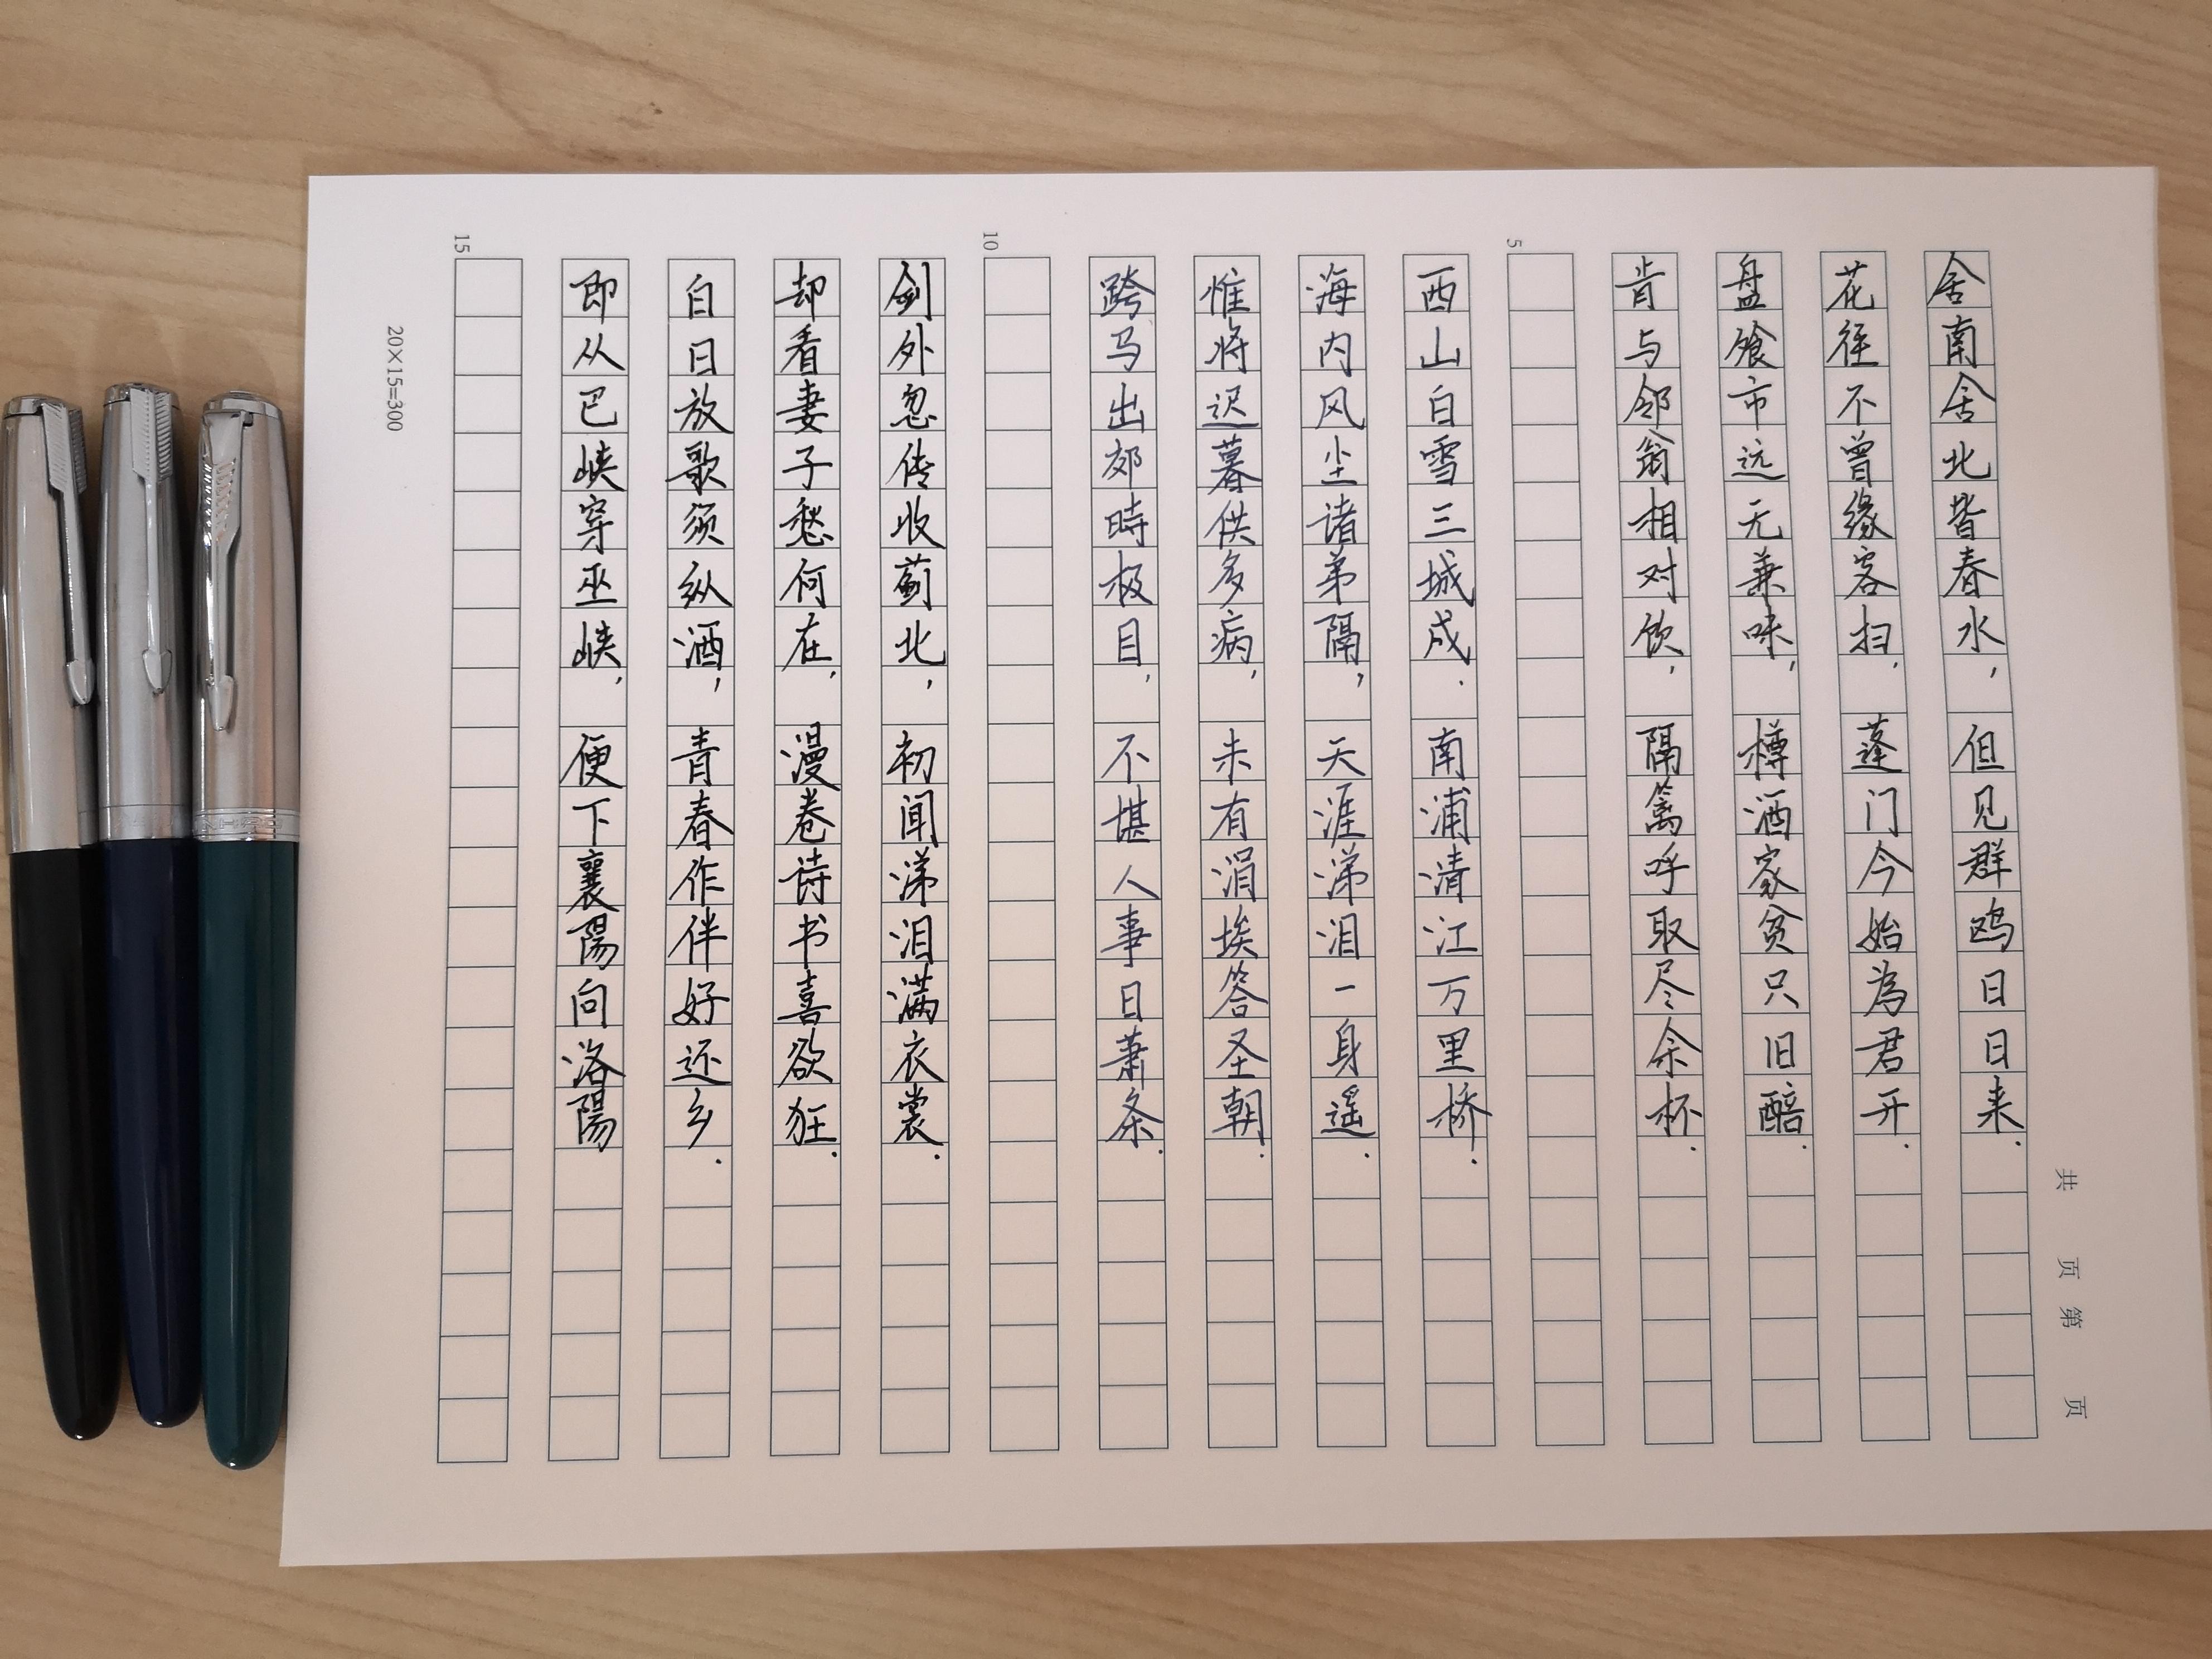 舍南舍北皆春水，但见群鸥日日来.
花径不曾缘客扫，蓬门今始為君开.
盘飧市远无兼味，樽酒家贫只旧醅.
肯与邻翁相对饮，隔篱呼取尽余杯.
西山白雪三城戍.南浦清江万里桥.
海内风尘诸弟隔，天涯涕泪一身遥.
惟将迟暮供多病，未有涓埃答圣朝.
跨马出郊時极目，不堪人事日萧条.
剑外忽传收蓟北，初闻涕泪满衣裳.
却看妻子愁何在，漫卷诗书喜欲狂.
白日放歌须纵酒，青春作伴好还乡.
即从巴峡穿巫峡，便下襄陽向洛陽
共 页 第 页
5
10
15
20×15=300